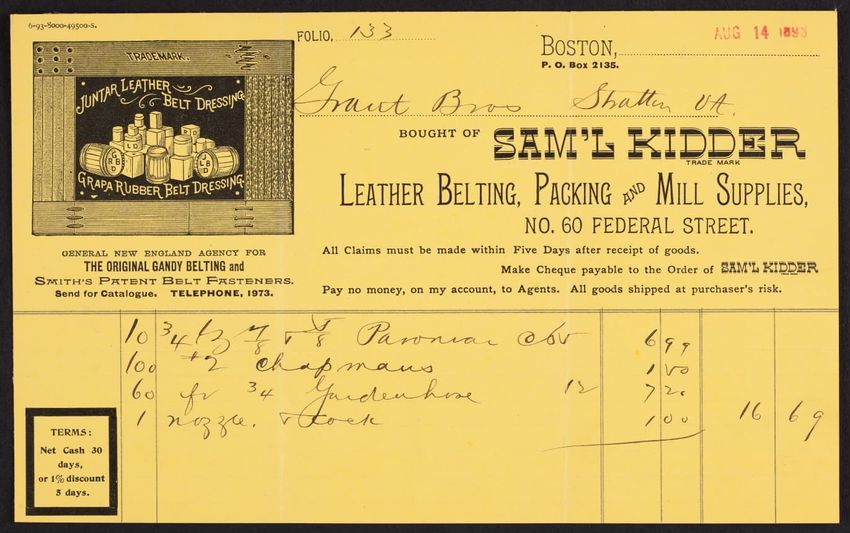 6-93-8000-49500-S.
FOLIO, 133
BOSTON, AUG 14 1893
P. O. Box 2135.
TRADEMARK.
JUNTAR LEATHER
BELT DRESSING
GRAPA RUBBER BELT DRESSING.
Grant Bros Stratton VA.
BOUGHT OF SAM'L KIDDER
TRADE MARK
LEATHER BELTING, PACKING AND MILL SUPPLIES,
NO. 60 FEDERAL STREET.
GENERAL NEW ENGLAND AGENCY FOR
THE ORIGINAL GANDY BELTING and
SMITH'S PATENT BELT FASTENERS.
Send for Catalogue. TELEPHONE, 1973.
All Claims must be made within Five Days after receipt of goods.
Make Cheque payable to the Order of SAM'L KIDDER
Pay no money, on my account, to Agents. All goods shipped at purchaser's risk.
10 3/4 7/8 & 5/8 699
100 #2 Chapmans 100
60 ft 3/4 Gardenhose 12 720
1 nozzle. & cock 100 16 69
TERMS:
Net Cash 30
days,
or 1% discount
5 days.